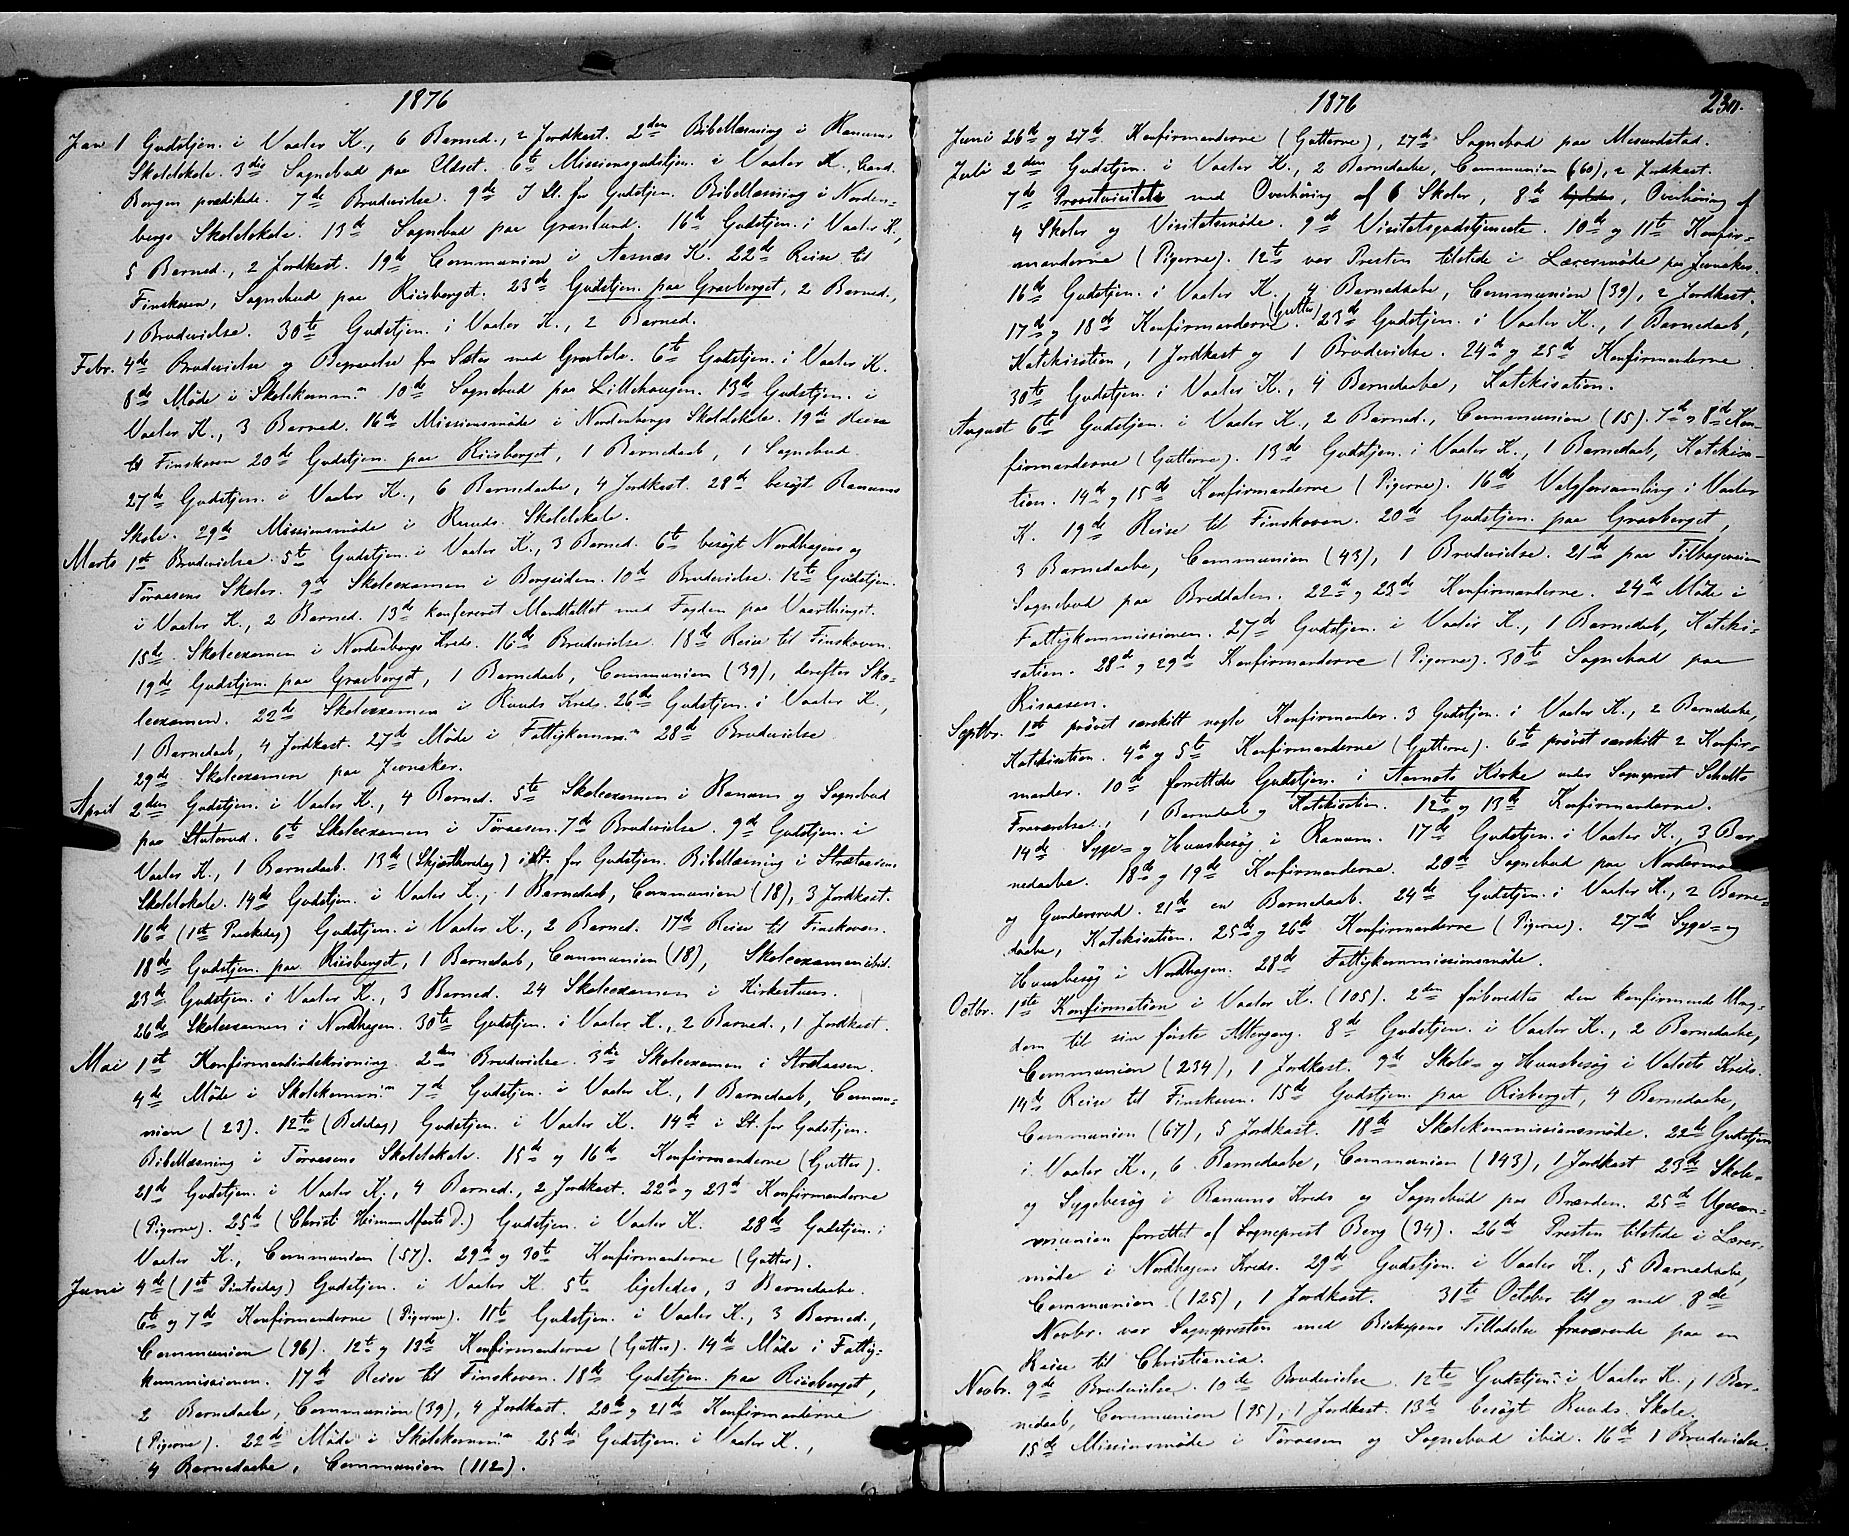 1876
Jan 1 Gudstjen. i Vaaler K., 6 Barned., 2 Jordkast. 2den Bibellæsning i Ranums
Skolelokale. 3die Sognebud paa Udset. 6te Missionsgudstjen. i Vaaler K., Cand.
Borgen prædikede. 7de Brudevielse. 9de I St. for Gudstjen. Bibellæsning i Norden-
bergs Skolelokale. 13de Sognebud paa Grønlund. 16de Gudstjen. i Vaaler K.,
5 Barned., 2 Jordkast. 19de Communion i Aasnæs K. 22de Reise til
Finskoven, Sognebud paa Riisberget. 23de Gudstjen. paa Gravberget, 2 Barned.,
1 Brudevielse. 30te Gudstjen. i Vaaler K., 2 Barned.
Febr. 4de Brudevielse og fra Sæter med . 6te Gudstjen. i Vaaler K.
8de Møde i Skolekomm.n 10de Sognebud paa Lillehaugen. 13de Gudstjen. i
Vaaler K., 3 Barned. 16de Missionsmøde i Nordenbergs Skolelokale. 19de Reise
til Finskoven 20de Gudstjen. paa Riisberget, 1 Barnedaab, 1 Sognebud.
27de Gudstjen. i Vaaler K., 6 Barnedaabe, 4 Jordkast. 28de besøgt Ranums
Skole. 29de Missionsmøde i Ruuds Skolelokale.
Marts 1st Brudevielse. 5te Gudstjen. i Vaaler K., 3 Barned. 6te besøgt Nordhagens og
Töraasens Skoler. 9de Skoleexamen i Borgsiden. 10de Brudevielse. 12te Gudstjen.
i Vaaler K., 2 Barned. 13de konfereret Mandtallet med Fogden paa Vaarthinget.
15de Skoleexamen i Nordenbergs Kreds. 16de Brudevielse. 18de Reise til Finskoven.
19de Gudstjen. paa Gravberget, 1 Barnedaab, Communion (39), derefter Sko-
leexamen. 22de Skoleexamen i Ruuds Kreds. 26de Gudstjen. i Vaaler K.,
1 Barnedaab, 4 Jordkast. 27de Møde i Fattigkomm.n 28de Brudevielse.
29de Skoleexamen paa Jevnaker.
April 2den Gudstjen. i Vaaler K., 4 Barned. 5te Skoleexamen i Ranum og Sognebud
paa Stuterud. 6te Skoleexamen i Töraasen. 7de Brudevielse. 9de Gudstjen. i
Vaaler K., 1 Barnedaab. 13de (Skjærthorsdag) i St. for Gudstjen. Bibellæsning i Strætaasens
Skolelokale. 14de Gudstjen. i Vaaler K., 1 Barnedaab, Communion (18), 3 Jordkast.
16de (1st Paaskedag) Gudstjen. i Vaaler K., 2 Barned. 17de Reise til Finskoven.
18de Gudstjen. paa Riisberget, 1 Barnedaab, Communion (18), Skoleexamen ibid.
23de Gudstjen. i Vaaler K., 3 Barned. 24 Skoleexamen i Kirkestuen.
26de Skoleexamen i Nordhagen. 30te Gudstjen. i Vaaler K., 2 Barned., 1 Jordkast.
Mai 1st Konfirmandindskrivning. 2den Brudevielse. 3die Skoleexamen i Strætaasen.
4de Møde i Skolekomm.n 7de Gudstjen. i Vaaler K., 1 Barnedaab, Commu-
nion (23). 12te (Bededag) Gudstjen. i Vaaler K. 14de i St. for Gudstjen.
Bibellæsning i Töraasens Skolelokale. 15de og 16de Konfirmanderne (Gutter).
21de Gudstjen. i Vaaler K., 4 Barned., 2 Jordkast. 22de og 23de Konfirmanderne
(Pigerne). 25de (Christi Himmelfarts D.) Gudstjen. i Vaaler K. 28de Gudstjen. i
Vaaler K., Communion (57). 29de og 30te Konfirmanderne (Gutter).
Juni 4de (1st Pintsedag) Gudstjen. i Vaaler K. 5te ligeledes, 3 Barnedaabe.
6te og 7de Konfirmanderne (Pigerne). 11te Gudstjen. i Vaaler K., 3 Barned.,
Communion (96). 12te og 13de Konfirmanderne (Gutter). 14de Møde i Fattig-
kommissionen. 17de Reise til Finskoven. 18de Gudstjen. paa Riisberget,
2 Barnedaabe, Communion (39), 4 Jordkast. 20de og 21de Konfirmanderne
(Pigerne). 22de Møde i Skolekomm.n 25de Gudstjen. i Vaaler K.,
4 Barnedaabe, Communion (112).
1876 230.
Juni 26de og 27de Konfirmanderne (Gutterne), 27de Sognebud paa Mosundstad.
Juli 2den Gudstjen. i Vaaler K., 2 Barnedaabe, Communion (60), 2 Jordkast.
7de Provstevisitats med Overhøring af 6 Skoler, 8de ligeledes, Overhøring af
4 Skoler og Visitatsmøde. 9de Visitatsgudstjeneste. 10de og 11te Konfir-
manderne (Pigerne). 12te var Presten tilstede i Lærermøde paa Jevnaker.
16de Gudstjen. i Vaaler K., 4 Barnedaabe, Communion (39), 2 Jordkast.
17de og 18de Konfirmanderne (Gutter). 23de Gudstjen. i Vaaler K., 1 Barnedaab,
Katekisation, 1 Jordkast og 1 Brudevielse. 24de og 25de Konfirmanderne.
30te Gudstjen. i Vaaler K., 4 Barnedaabe, Katekisation.
August 6te Gudstjen. i Vaaler K., 2 Barned., Communion (15). 7de og 8de Kon-
firmanderne (Gutterne). 13de Gudstjen. i Vaaler K., 1 Barnedaab, Katekisa-
tion. 14de og 15de Konfirmanderne (Pigerne). 16de Valgforsamling i Vaaler
K. 19de Reise til Finskoven. 20de Gudstjen. paa Gravberget,
3 Barnedaabe, Communion (43), 1 Brudevielse. 21de paa Tilbageveien
Sognebud paa Breddalen. 22de og 23de Konfirmanderne. 24de Møde i
Fattigkommissionen. 27de Gudstjen. i Vaaler K., 1 Barnedaab, Kateki-
sation. 28de og 29de Konfirmanderne (Pigerne). 30te Sognebud paa
Risaasen.
Septbr. 1st prövet særskilt nogle Konfirmander. 3 Gudstjen. i Vaaler K., 2 Barnedaabe,
Katekisation. 4de og 5te Konfirmanderne (Gutterne). 6te prövet særskilt 2 Konfir-
mander. 10de forrettedes Gudstjen. i Aamots Kirke under Sogneprest Schulttz
Fraværelse, 1 Barnedaab og Katekisation. 12te og 13de Konfirmanderne.
14de Syge- og Huusbesøg i Ranum. 17de Gudstjen. i Vaaler K., 3 Bar-
nedaabe. 18de og 19de Konfirmanderne. 20de Sognebud paa
og Gundersrud. 21de en Barnedaab. 24de Gudstjen. i Vaaler K., 2 Barne-
daabe, Katekisation. 25de og 26de Konfirmanderne (Pigerne). 27de Syge- og
Huusbesøg i Nordhagen. 28de Fattigkommissionsmøde.
Octbr. 1ste Konfirmation i Vaaler K. (105). 2den forberedtes den konfirmerede Ung-
dom til sin første Altergang. 8de Gudstjen. i Vaaler K., 2 Barnedaabe,
Communion (234), 1 Jordkast. 9de Skole- og Huusbesøg i Kreds.
14de Reise til Finskoven. 15de Gudstjen. paa Risberget, 4 Barnedaabe,
Communion (67), 5 Jordkast. 18de Skolekommissionsmøde. 22de Gudstjen
i Vaaler K., 6 Barnedaabe, Communion (143), 1 Jordkast 23de Skole-
og Sygebesøg i Ranums Kreds og Sognebud paa Bræden. 25de Ugecom-
munion forrettet af Sogneprest Berg (34). 26de Presten tilstede i Lærer-
møde i Nordhagens Kreds. 29de Gudstjen. i Vaaler K., 5 Barnedaabe,
Communion (125), 1 Jordkast. 31te October til og med 8de
Novbr. var Sognepresten med Biskopens Tilladelse fraværende paa en
Reise til Christiania.
Novbr. 9de Brudevielse. 10de Brudevielse. 12te Gudstjen. i Vaaler K., 1 Bar-
nedaab, Communion (95), 1 Jordkast. 13de besøgt Ruuds Skole.
15de Missionsmøde i Töraasen og Sognebud ibid. 16de 1 Brudevielse.